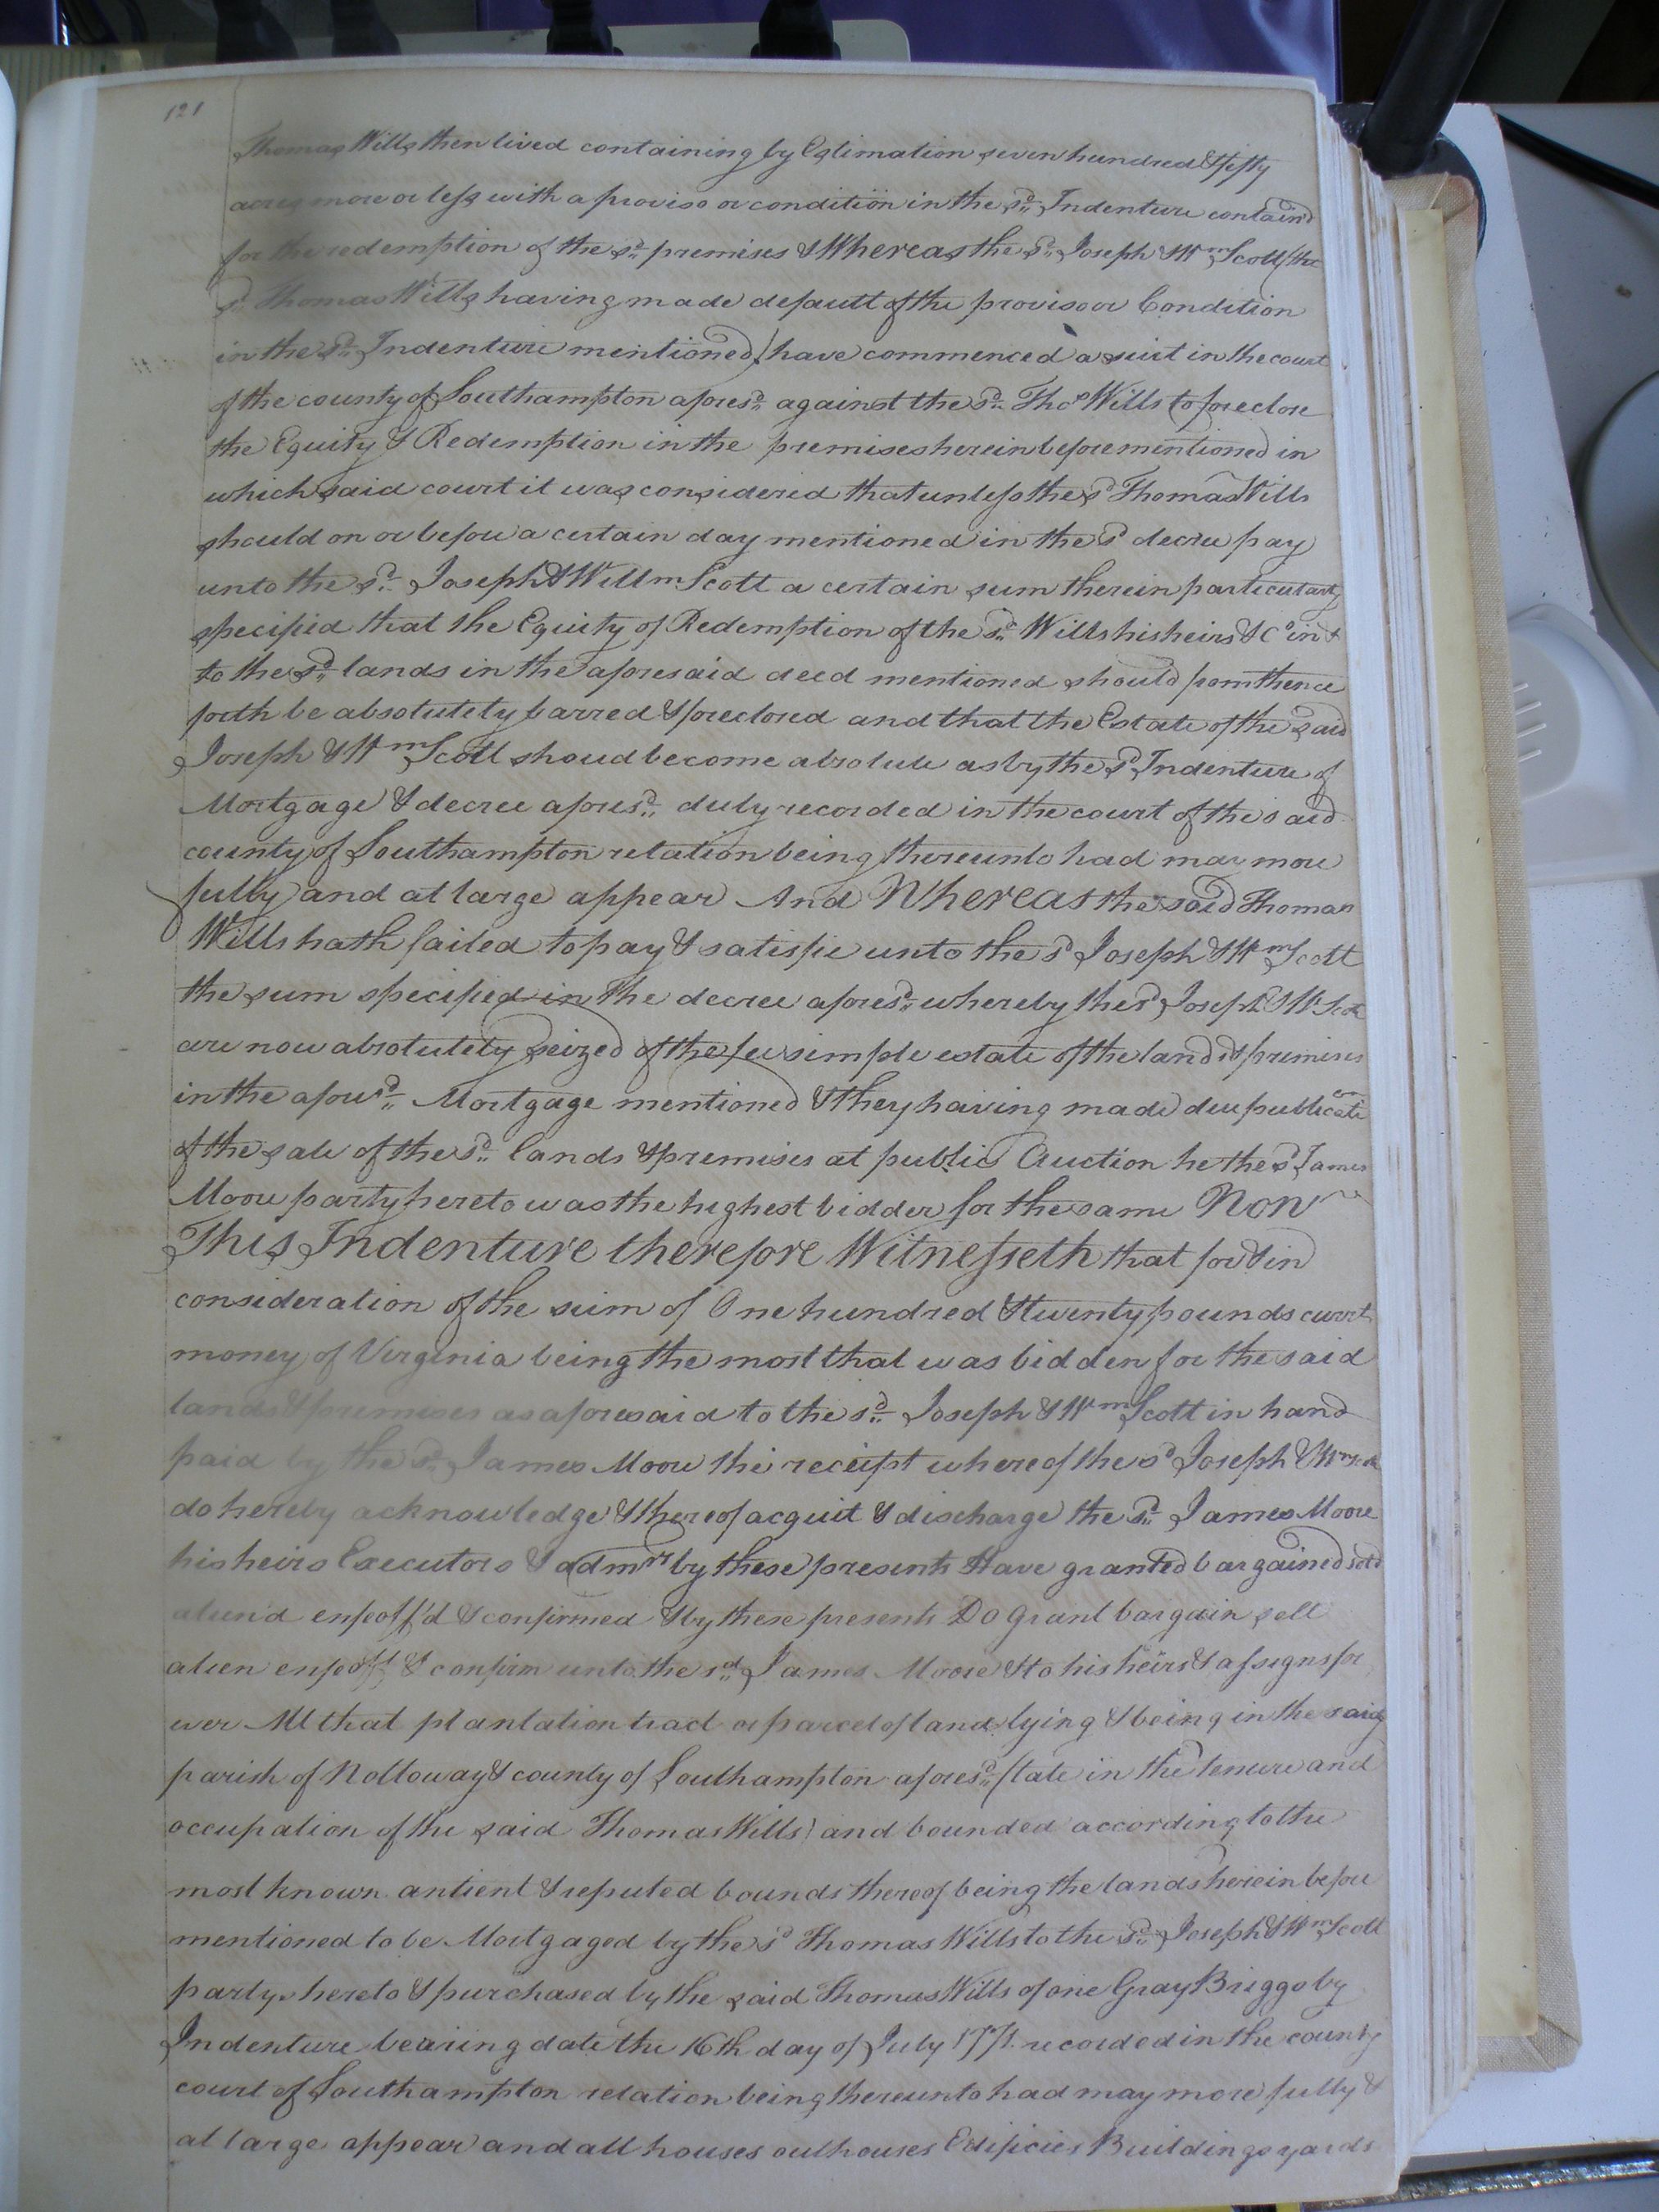 121
Thomas Wills then lived containing by Estimation seven hundred & fifty
acres more or less with a proviso or condition in the sd. Indenture containd
for the redemption of the sd. premises & Whereas the sd. Joseph & Wm Scott (the
sd. Thomas Wills having made default of the proviso or Condition
in the sd. Indenture mentioned) have commenced a suit in the court
of the county of Southampton aforesd. against the sd. Thos Wills to foreclose
the Equity & Redemption in the premises herein before mentioned in
which said court it was considered that unless the sd Thomas Wills
should on or before a certain day mentioned in the sd decree pay
unto the sd. Joseph & Willm Scott a certain sum therein particularly
specified that the Equity of Redemption of the sd. Wills his heirs &Ca in &
to the sd. lands in the aforesaid deed mentioned should from thence
forth be absolutely barred & foreclosed and that the Estate of the said
Joseph & Wm Scott shoud become absolute as by the sd Indenture of
Mortgage & decree aforesd. duly recorded in the court of the said
county of Southampton relation being thereunto had may more
fully and at large appear And Whereas the said Thomas
Wills hath failed to pay & satisfie unto the sd Joseph & Wm Scott
the sum specified in the decree aforesd. whereby the sd Joseph & Wm Scott
are now absolutely seized of the fee simple estate of the land & premises
in the aforesd. Mortgage mentioned & they having made due publication
of the sale of the sd. lands & premises at public Auction he the sd James
Moore party hereto was the highest bidder for the same Now
This Indenture therefore Witnesseth that for & in
consideration of the sum of One hundred & twenty pounds currt
money of Virginia being the most that was bidden for the said
lands & premises as aforesaid to the sd. Joseph & Wm Scott in hand
paid by the sd. James Moore the receipt whereof the sd Joseph & Wm Scott
do hereby acknowledge & thereof acquit & discharge the sd. James Moore
his heirs Executors & admrs by these presents Have granted bargained sold
aliend enfeoff'd & confirmed & by these presents Do Grant bargain sell
alien enfeoff & confirm unto the sd. James Moore & to his heirs & assigns for
ever All that plantation tract or parcel of land lying & being in the said
parish of Nottoway & county of Southampton aforesd. (late in the tenure and
occupation of the said Thomas Wills) and bounded according to the
most known antient & reputed bounds thereof being the lands herein before
mentioned to be Mortgaged by the sd Thomas Wills to the sd. Joseph & Wm Scott
partys hereto & purchased by the said Thomas Wills of one Gray Briggs by
Indenture bearing date the 16th day of July 1771 recorded in the county
court of Southampton relation being thereunto had may more fully &
at large appear and all houses outhouses Edificies Buildings yards